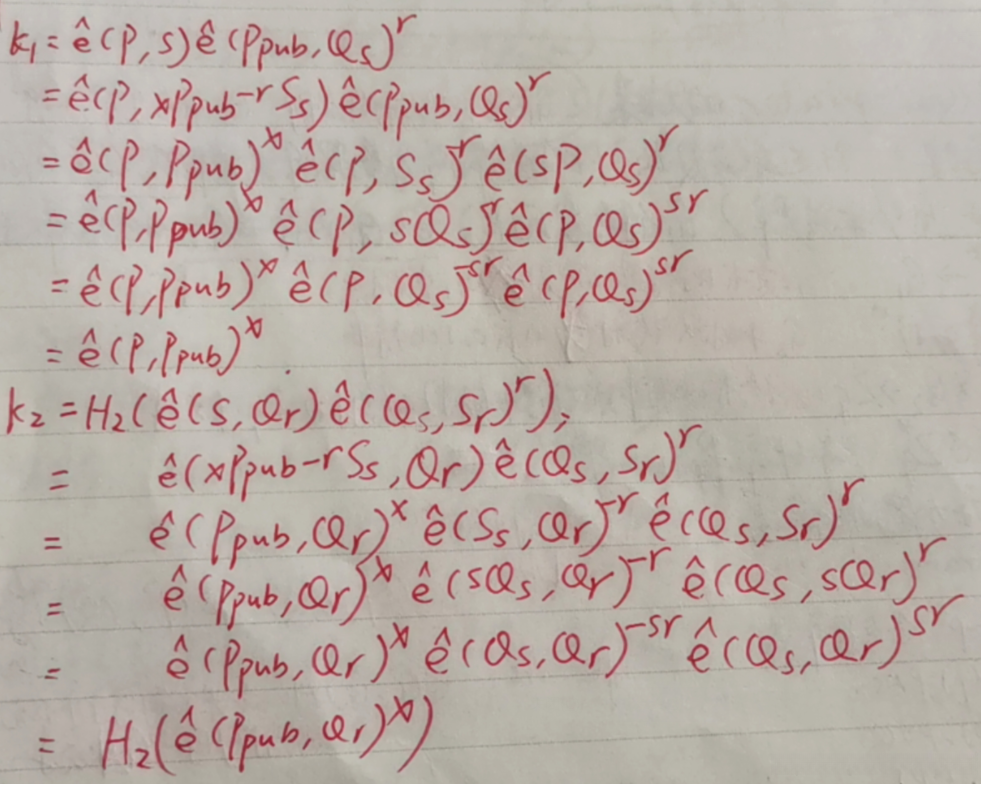 k₁ = ê(P, S) ê(Ppub, Qs)ʳ
= ê(P, xPpub - rSs) ê(Ppub, Qs)ʳ
= ê(P, Ppub)ˣ ê(P, Ss)⁻ʳ ê(sP, Qs)ʳ
= ê(P, Ppub)ˣ ê(P, sQs)⁻ʳ ê(P, Qs)ˢʳ
= ê(P, Ppub)ˣ ê(P, Qs)⁻ˢʳ ê(P, Qs)ˢʳ
= ê(P, Ppub)ˣ.
k₂ = H₂(ê(S, Qr) ê(Qs, Sr)ʳ);
= ê(xPpub - rSs, Qr) ê(Qs, Sr)ʳ
= ê(Ppub, Qr)ˣ ê(Ss, Qr)⁻ʳ ê(Qs, Sr)ʳ
= ê(Ppub, Qr)ˣ ê(sQs, Qr)⁻ʳ ê(Qs, sQr)ʳ
= ê(Ppub, Qr)ˣ ê(Qs, Qr)⁻ˢʳ ê(Qs, Qr)ˢʳ
= H₂(ê(Ppub, Qr)ˣ)